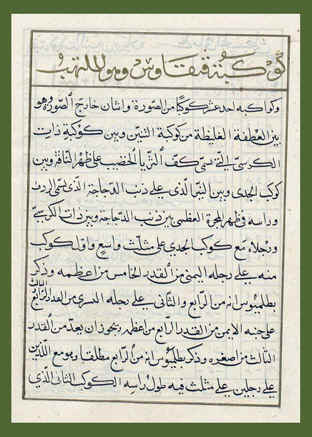 كوكبة قيقاوس وهو الملتهب
وكواكبه احد عشر كوكبًا من الصورة واثنان خارج الصورة وهو
بين العطفة الغليظة من كوكبة التنين وبين كوكبة ذات
الكرسي التي تسمى كف الثريا الخضيب على ظهر الناقة وبين
كوكب الجدي وبين النير الذي على ذنب الدجاجة الذي يسمى الردف
وراسه في ظهر المجرة العظمى بين ذنب الدجاجة وبين ذات الكرسي
ورجلاه مع كوكب الجدي على مثلث واسع واول كوكب
منه على رجله اليمنى من القدر الخامس من اعظمه وذكر
بطلميوس انه من الرابع والثاني على رجله اليسرى من القدر الرابع
على جنبه الايمن من القدر الرابع من اعظمه
الثالث من اصغره وذكر بطلميوس انه من الرابع مطلقا وهو مع اللذين
على رجلين على مثلث فيه طول راسه الكوكب الثاني الذي